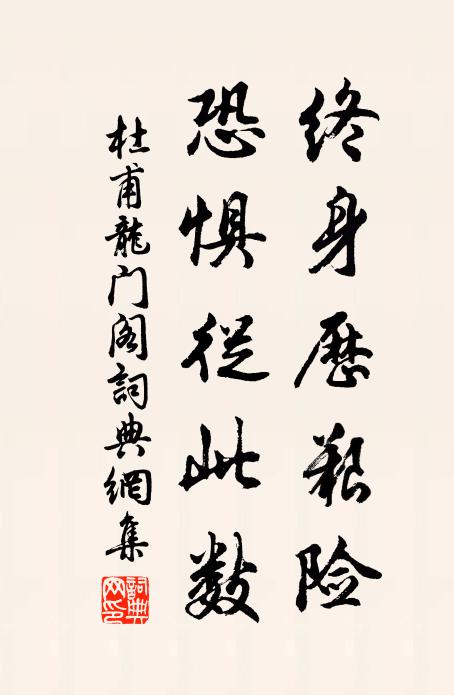 终身歷艰险
恐惧從此数
杜甫龍门阁詞典網集
詞典网印